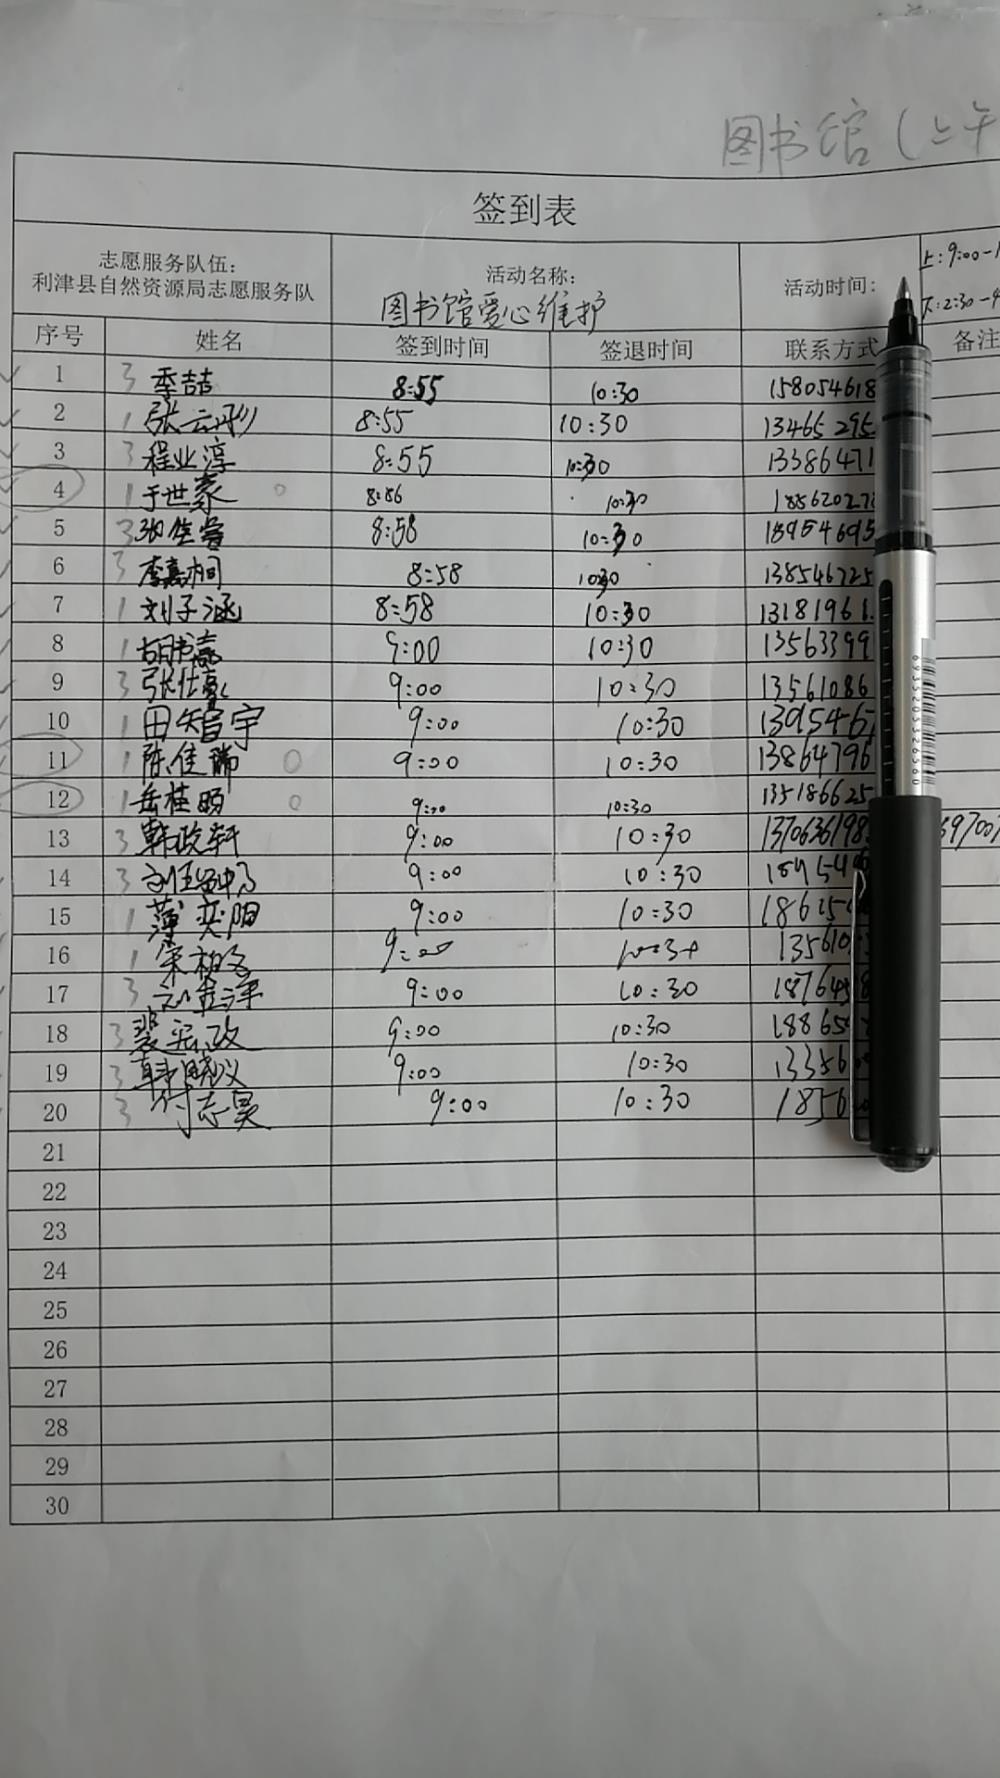 图书馆（上午
签到表
志愿服务队伍：
利津县自然资源局志愿服务队
活动名称：
图书馆爱心维护
活动时间：
上：9:00-1
下：2:30-4
序号 姓名 签到时间 签退时间 联系方式 备注
1 3 季喆 8:55 10:30 158054618
2 1 张云彤 8:55 10:30 13465295
3 3 程业淳 8:55 10:30 13386471
4 1 于世豪 8:86 10:30 18562027
5 3 8:58 10:30 18954695
6 3 李嘉桐 8:58 10:30 138546725
7 1 刘子涵 8:58 10:30 13181961
8 1 胡书嘉 9:00 10:30 13563399
9 3 张仕豪 9:00 10:30 13561086
10 1 田智宇 9:00 10:30 1395467
11 1 陈佳瑞 9:00 10:30 13864796
12 1 岳桂旸 9:00 10:30 135186625
13 3 韩政轩 9:00 10:30 1370636198 69700
14 3 9:00 10:30 18954
15 1 薄奕阳 9:00 10:30 18625
16 1 宋柏文 9:00 135610
17 3 刘金泽 9:00 10:30 187645
18 3 裴宏政 9:00 10:30 18865
19 3 韩晓议 9:00 10:30 13356
20 3 付志昊 9:00 10:30 1856
21
22
23
24
25
26
27
28
29
30
6935205326560